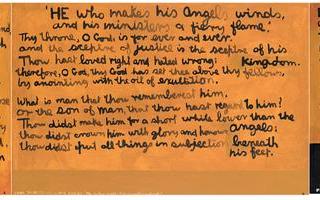 'HE who makes his Angels winds,
and his ministers a fiery flame.'
Thy throne, O God, is for ever and ever
and the sceptre of justice is the sceptre of his
Thou hast loved right and hated wrong: kingdom.
therefore, O God, thy God has set thee above thy fellows,
by anointing with the oil of exultation.
What is man that thou rememberest him,
or the son of man, that thou hast regard to him?
Thou didst make him for a short while lower than the
thou didst crown him with glory and honour angels:
thou didst put all things in subjection beneath
his feet.